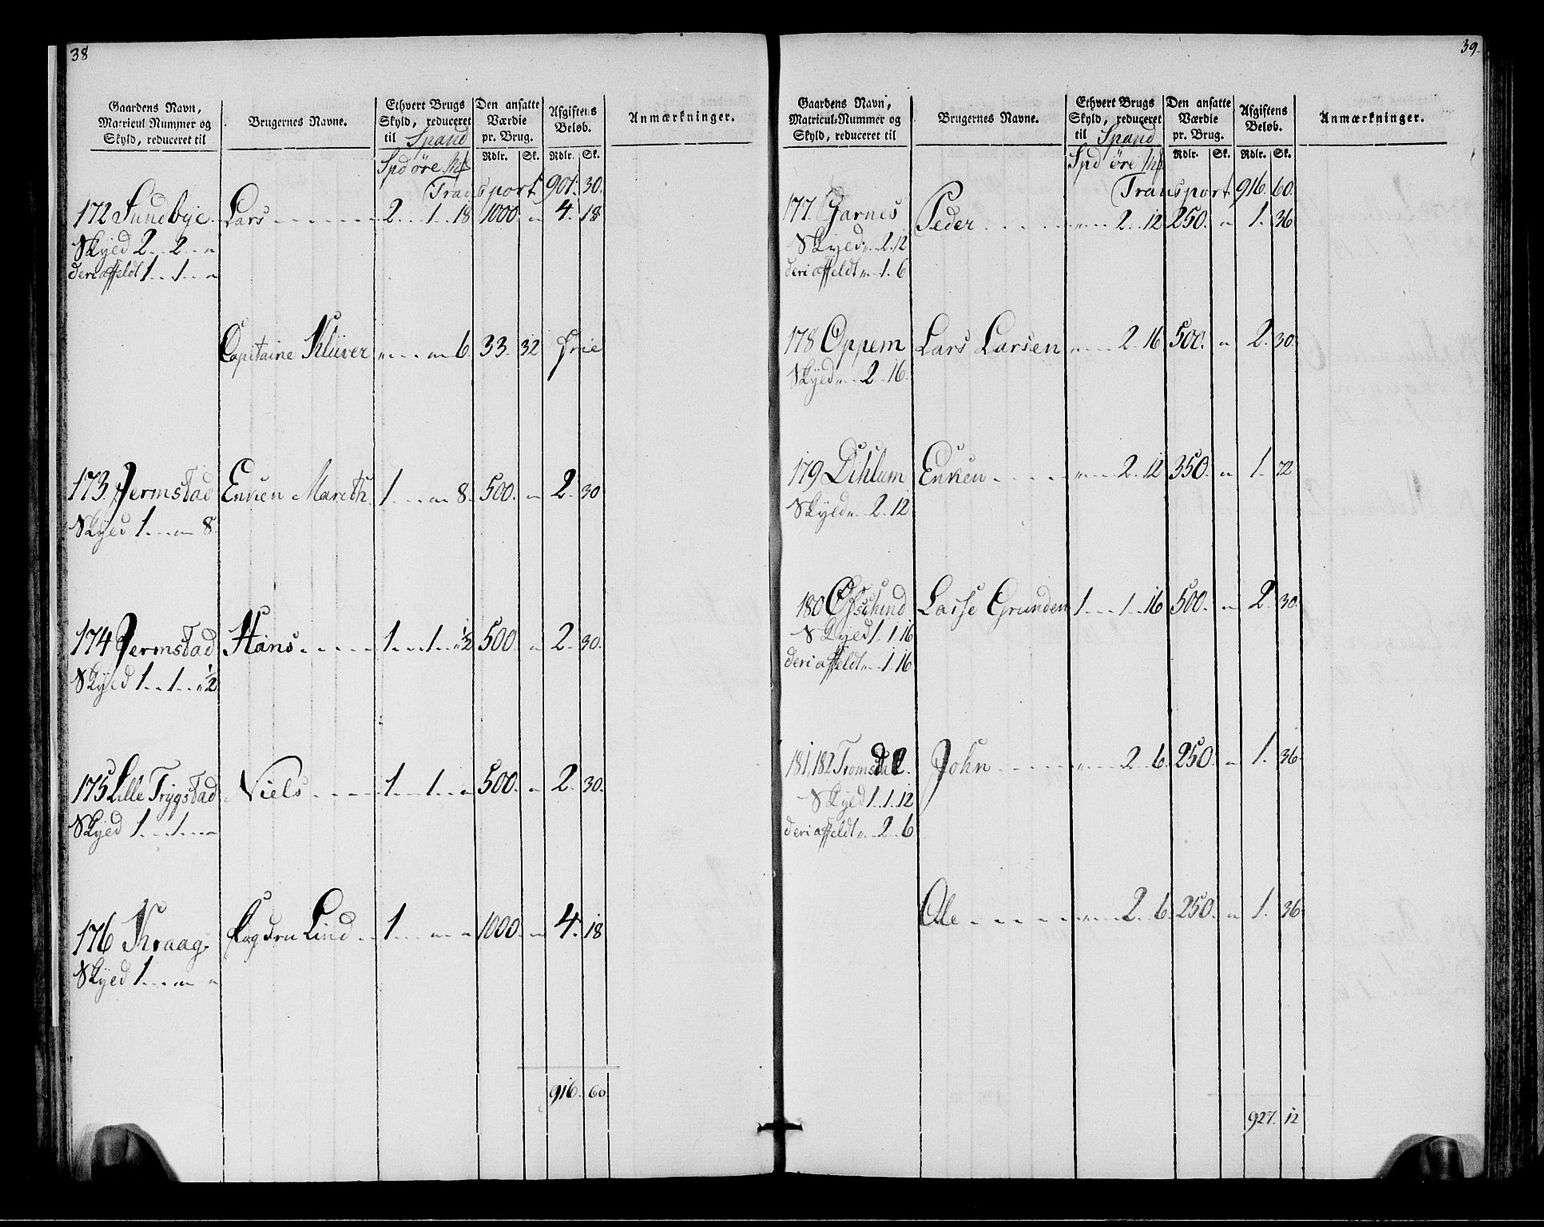 38
Gaardens Navn, Matricul Nummer og Skyld, reduceret til
Brugernes Navne.
Ethvert Brugs Skyld, reduceret til Spand
Den ansatte Værdie pr. Brug.
Afgiftens Beløb.
Anmærkninger.
Rdlr. Sk. Rdlr. Sk.
Spd öre
Transport 901. 30.
172 Sundbye. Lars 2. 1. 18 1000. " 4. 18
Skyld 2. 2. "
deri affeldt 1. 1. "
Capitaine Klüver " " 6. 33. 32 frie
173 Jermstad Enken Mareth. 1. " 8. 500. " 2. 30
Skyld 1. " 8
174 Jermstad Hans 1. 1. 1/2 500. " 2. 30.
Skyld 1. 1. 1/2
175 Lille Trygstad Niels 1. 1. " 500. " 2. 30.
Skyld 1. 1. "
176 Kraag. Lind 1. " " 1000. " 4. 18
Skyld 1. " "
916. 60
39.
Gaardens Navn, Matricul-Nummer og Skyld, reduceret til
Brugernes Navne.
Ethvert Brugs Skyld, reduceret til Spand
Den ansatte Værdie pr. Brug.
Afgiftens Beløb.
Anmærkninger.
Rdlr. Sk. Rdlr. Sk.
Spd öre
Transport 916. 60.
177. Garnes Peder " 2. 12 250. " 1. 36
Skyld " 2. 12
deri affeldt " 1. 6
178 Oppem Lars Larsen " 2. 16 500. " 2. 30.
Skyld " 2. 16.
179 Dihlum Enken " 2. 12 350. " 1. 72
Skyld " 2. 12
180 Lasse Grunden 1. 1. 16 500. " 2. 30.
Skyld 1. 1. 16
deri affeldt " 1. 16
181, 182 Tromsdal. John " 2. 6. 250. " 1. 36.
Skyld 1. 1. 12
deri affeldt " 2. 6
Ole " 2. 6. 250. " 1. 36.
927. 12